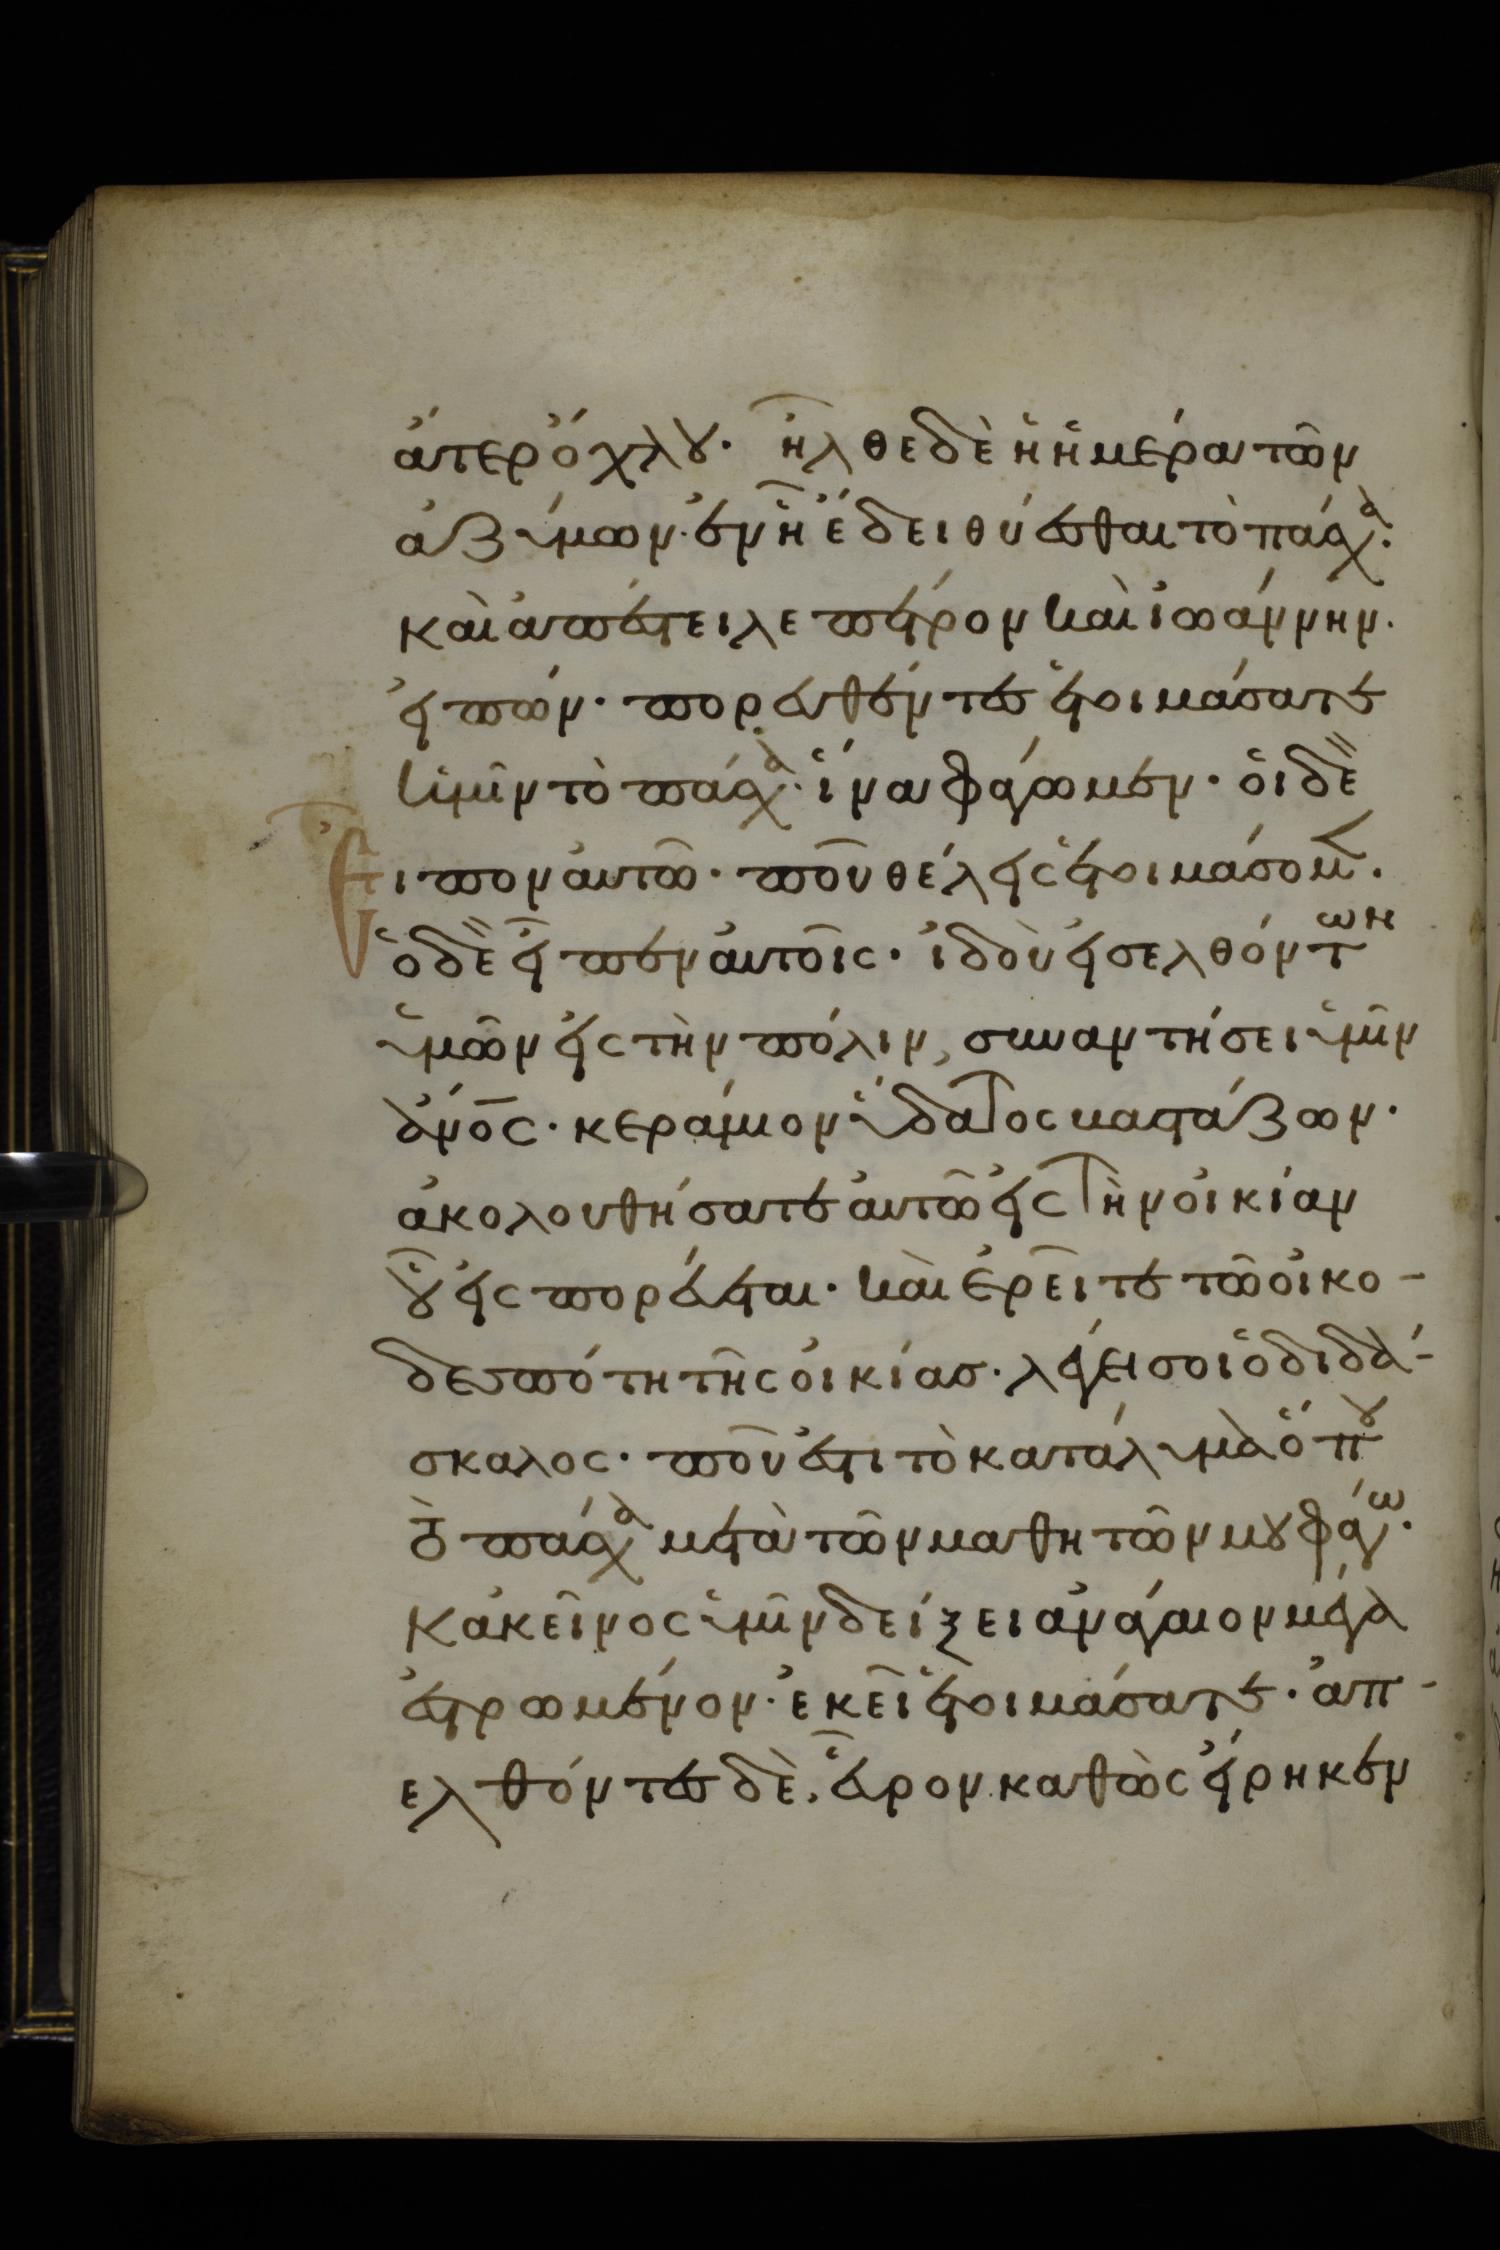 ἄτερ ὄχλου. ἦλθε δὲ ἡ ἡμέρα τῶν
ἀζύμων. ἐν ἧ ἔδει θύεσθαι τὸ πάσχα.
καὶ ἀπέστειλε πέτρον καὶ ἰωάννην.
εἰπών. πορευθέντες ἑτοιμάσατε
ἡμῖν τὸ πάσχα. ἵνα φάγωμεν. οἱ δὲ
εἶπον αὐτῶ. ποῦ θέλεις ἑτοιμάσομεν.
ὁ δὲ εἶπεν αὐτοῖς. ἰδοὺ εἰσελθόντων
ὑμῶν εἰς τὴν πόλιν, συναντήσει ὑμῖν
ἄνος. κεράμιον ὕδατος βαστάζων.
ἀκολουθήσατε αὐτῶ εἰς τὴν οἰκίαν
οὗ εἰσπορεύεται. καὶ ἐρεῖτε τῶ οἰκο-
δεσπότη τῆς οἰκίας. λέγει σοι ὁ διδά-
σκαλος. ποῦ ἐστι τὸ κατάλυμα ὅπου
τὸ πάσχα μετὰ τῶν μαθητῶν μου φάγω.
κἀκεῖνος ὑμῖν δείξει ἀνάγαιον μέγα
ἐστρωμένον. ἐκεῖ ἑτοιμάσατε. ἀπ-
ελθόντες δὲ, εὗρον καθὼς εἴρηκεν